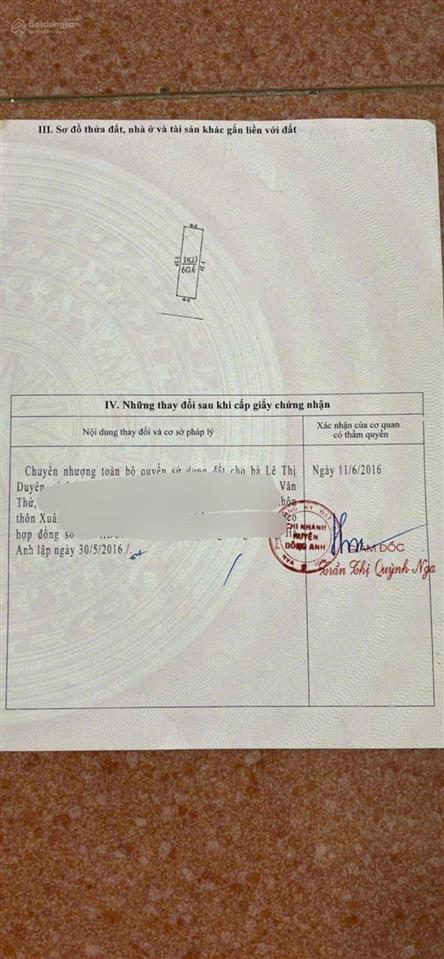 Batdongsan
III. Sơ đồ thửa đất, nhà ở và tài sản khác gắn liền với đất
31(2)
60,6
IV. Những thay đổi sau khi cấp giấy chứng nhận
Nội dung thay đổi và cơ sở pháp lý
Xác nhận của cơ quan
có thẩm quyền
Chuyển nhượng toàn bộ quyền sử dụng đất cho bà Lê Thị
Duyên
Văn
Thử,
thôn Xuâ
hợp đồng số
Anh lập ngày 30/5/2016./.
Ngày 11/6/2016
CHI NHÁNH
HUYỆN
ĐÔNG ANH
GIÁM ĐỐC
Trần Thị Quỳnh Nga